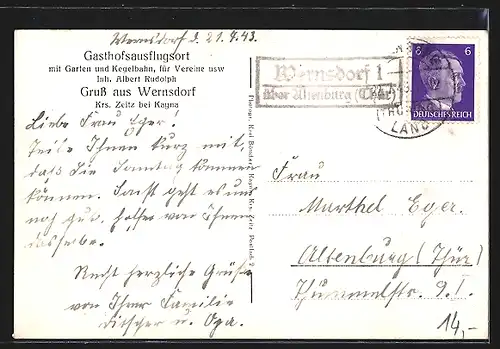 Wernsdorf d. 21.4.43.
Gasthofsausflugsort
mit Garten und Kegelbahn, für Vereine usw
Inh. Albert Rudolph
Gruß aus Wernsdorf
Krs. Zeitz bei Kayna
Liebe Frau Eger!
Teile Ihnen kurz mit
daß Sie Sonntag kommen
können. Sonst geht es uns
noch gut, hoffen von Ihnen
dasselbe.
Recht herzliche Grüße
von Ihrer Familie
u. Opa.
Wernsdorf 1
über Altenburg (Thür)
LAND
6 6
DEUTSCHES REICH
Frau
Marthel Eger.
Altenburg (Thür)
Thümmelstr. 9. I.
14,-